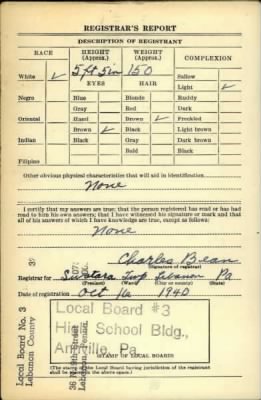 REGISTRAR'S REPORT
DESCRIPTION OF REGISTRANT
RACE HEIGHT (Approx.) WEIGHT (Approx.) COMPLEXION
5 ft 5 in 150
White ✓ EYES HAIR Sallow
Light ✓
Negro Blue Blonde Ruddy
Gray Red Dark
Oriental Hazel Brown ✓ Freckled
Brown ✓ Black Light brown
Indian Black Gray Dark brown
Bald Black
Filipino
Other obvious physical characteristics that will aid in identification
None
I certify that my answers are true; that the person registered has read or has had
read to him his own answers; that I have witnessed his signature or mark and that
all of his answers of which I have knowledge are true, except as follows:
None
Charles Bean
(Signature of registrar)
Registrar for Twp Lebanon Pa
(Precinct) (Ward) (City or county) (State)
Date of registration Oct 16 1940
Local Board No. 3
Lebanon County
Local Board #3
High School Bldg.,
Annville, Pa
(STAMP OF LOCAL BOARD)
(The stamp of the Local Board having jurisdiction of the registrant
shall be placed in the above space.)